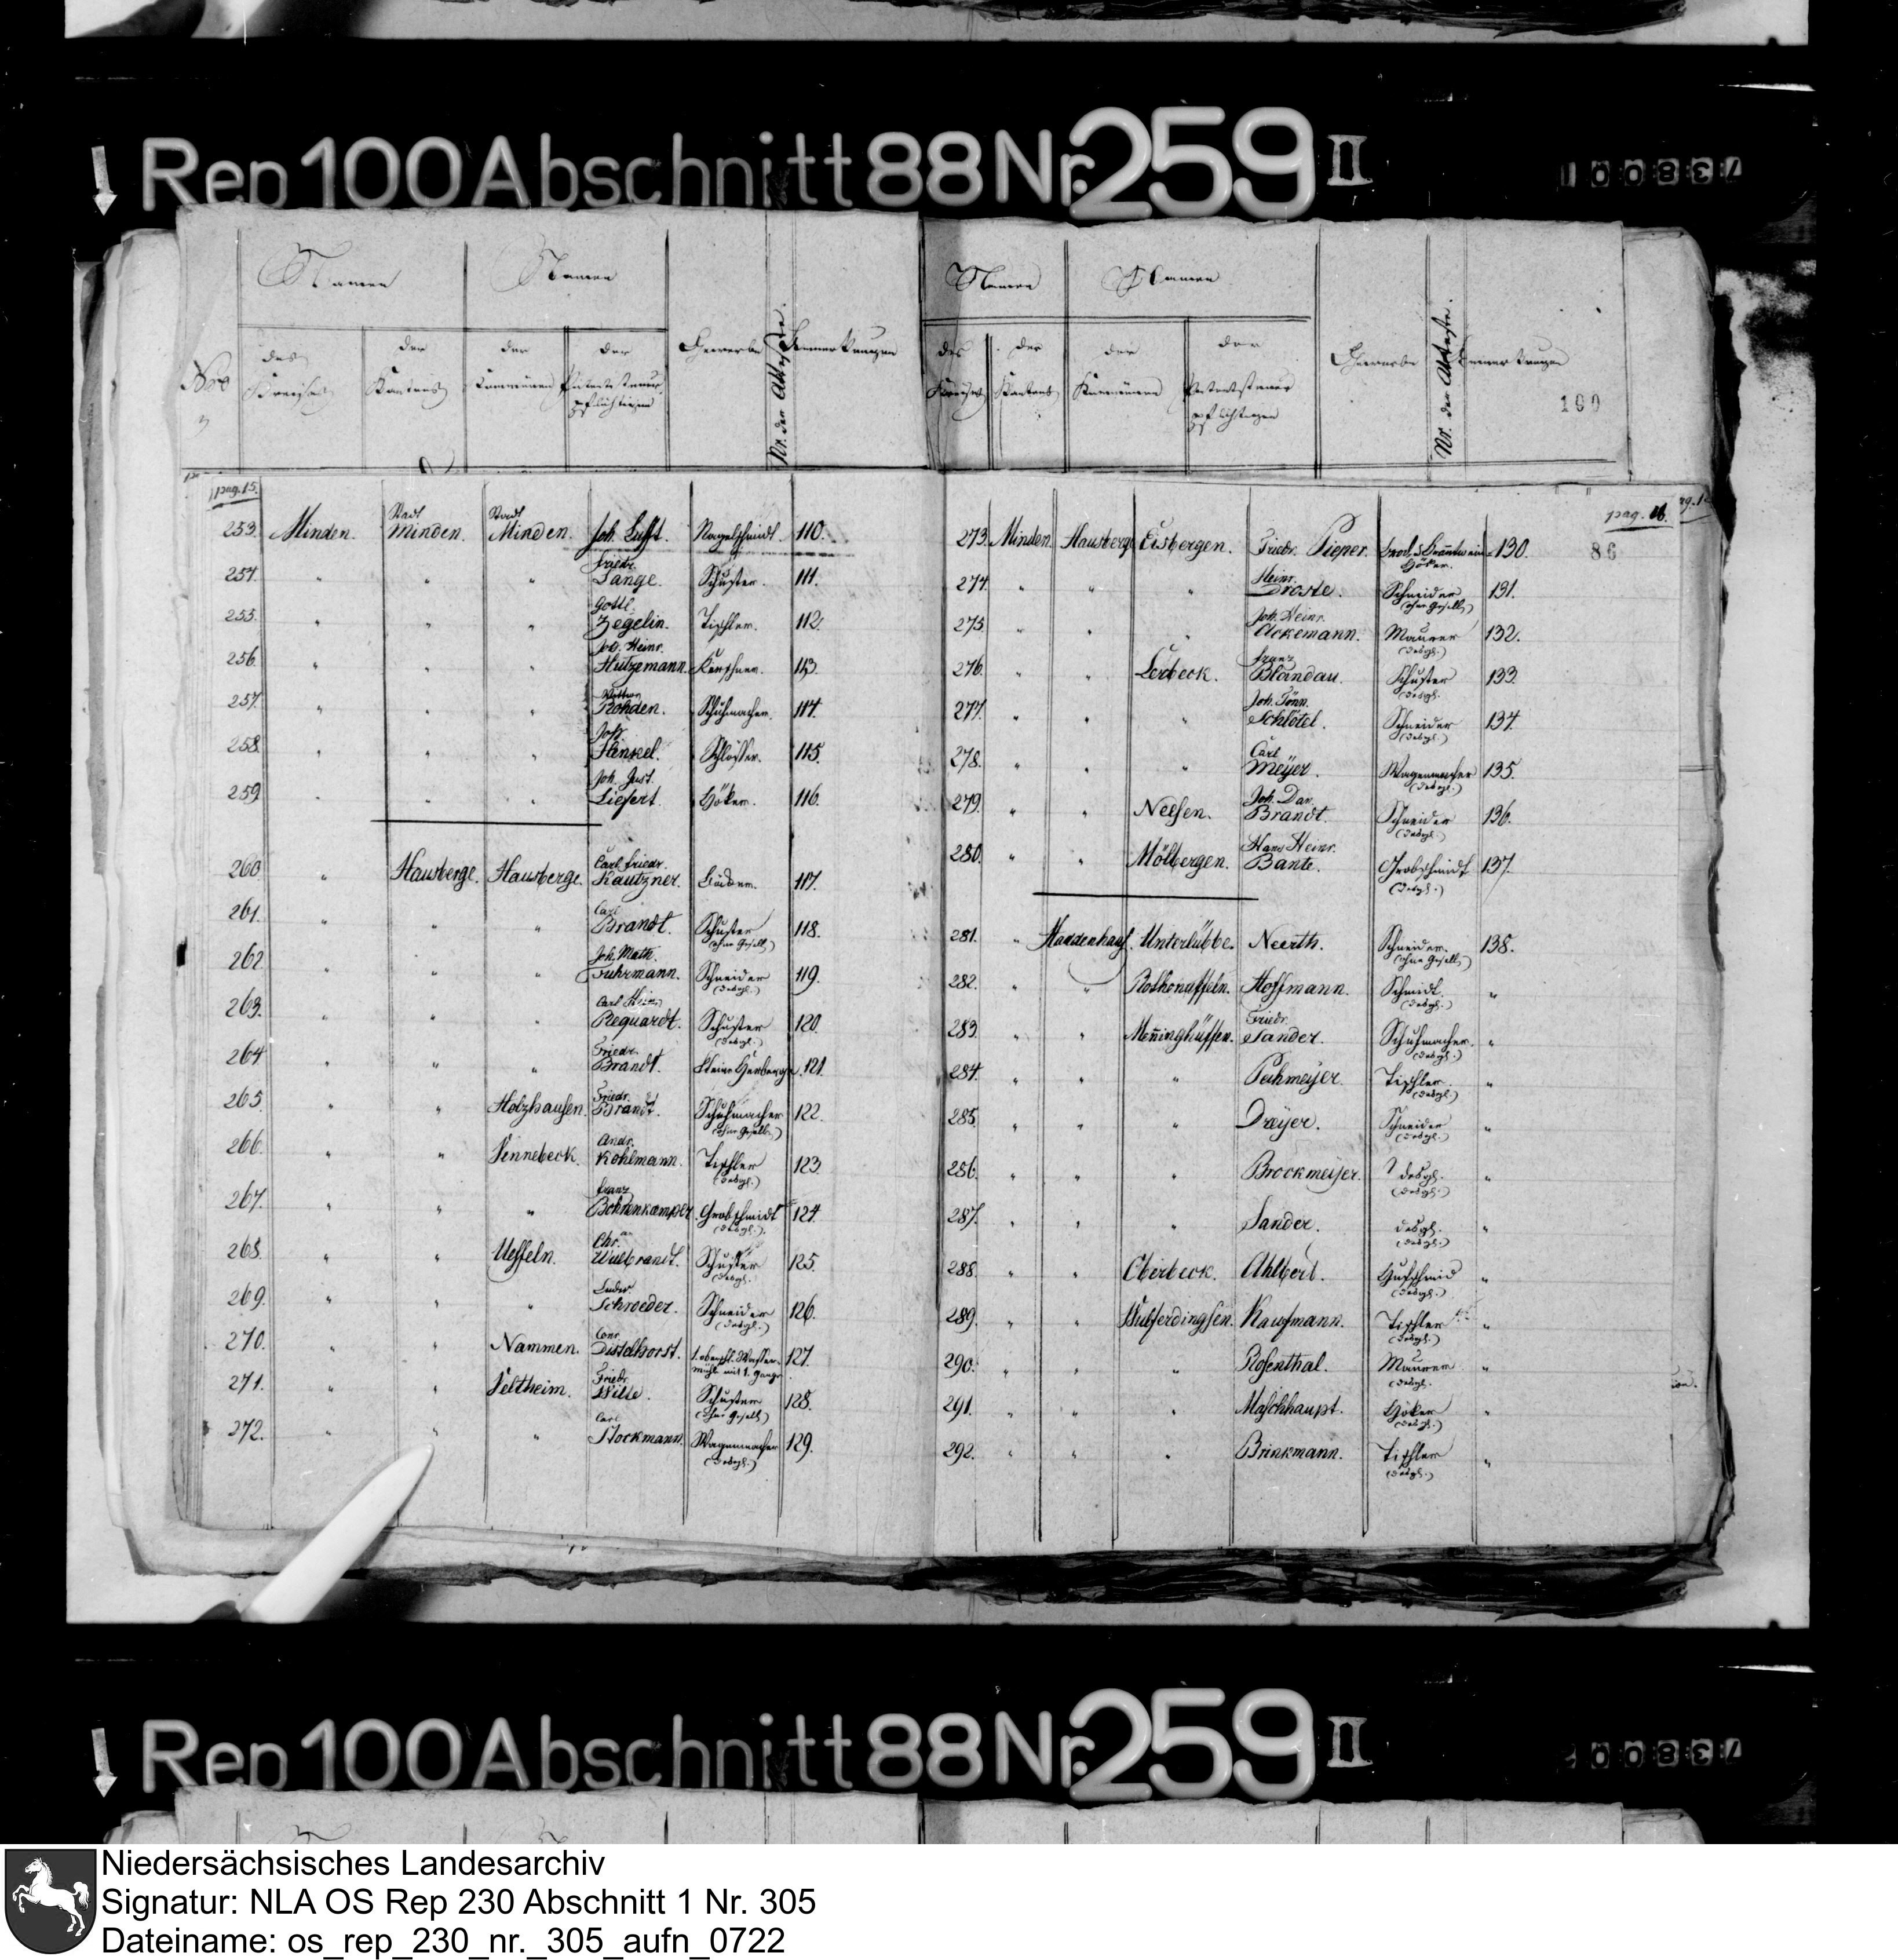 Rep 100 Abschnitt 88 Nr. 259 II
738001
Namen Namen
Nro des Kreises der Kantons der Communen der Patentsteuerpflichtigen Gewerbe Nr. der Atteste. Bemerkungen
Namen Namen
des Kreises der Kantons der Kummünen der Patentsteuer pflichtigen Gewerbe Nr. der Atteste. Bemerkungen
100
pag. 15.
253. Minden. Stadt Minden. Stadt Minden. Joh. Lufft. Nagelschmidt. 110.
254. " " " Friedr. Lange. Schuster. 111.
255. " " " Gottl. Zegelin. Tischler. 112.
256. " " " Joh. Heinr. Hutzemann. Kürschner. 113.
257. " " " Rohden. Schuhmacher. 114.
258. " " " Jos. Hensel. Schlosser. 115.
259. " " " Joh. Just. Liefert. Höker. 116.
260. " Hausberge. Hausberge. Carl Friedr. Kautzner. 117.
261. " " " Carl Brandt. Schuster (ohne Gesell.) 118.
262. " " " Joh. Math. Fuhrmann. Schneider (desgl.) 119.
263. " " " Carl Heinr. Requardt. Schuster (desgl.) 120.
264. " " " Friedr. Brandt. kleine Herberge. 121.
265. " " Holzhausen. Friedr. Brandt. Schuhmacher (ohne Gesell.) 122.
266. " " Vennebeck. Andr. Kohlmann. Tischler (desgl.) 123.
267. " " " Franz Bohnenkamper. Grobschmidt (desgl.) 124.
268. " " Ueffeln. Chr. Wulbrandt. Schuster (desgl.) 125.
269. " " " Ludw. Schroeder. Schneider (desgl.) 126.
270. " " Nammen. Conr. Distelhorst. 1. oberschl. Wassermühle mit 1. Gange. 127.
271. " " Veltheim. Friedr. Wille. Schuster (ohne Gesell.) 128.
272. " " " Carl Stockmann. Wagenmacher (desgl.) 129.
pag. 16.
86
273. Minden. Hausberge Eisbergen. Friedr. Pieper. Brod. & Branntwein Höker. 130.
274. " " " Heinr. Droste. Schneider (ohne Gesell.) 131.
275. " " " Joh. Heinr. Ackemann. Maurer (desgl.) 132.
276. " " Lerbeck. Franz Blandau. Schuster (desgl.) 133.
277. " " " Joh. Tönn. Schlötel. Schneider (desgl.) 134.
278. " " " Carl Meÿer. Wagenmacher (desgl.) 135.
279. " " Neesen. Joh. Dan. Brandt. Schneider (desgl.) 136.
280. " " Mölbergen. Hans Heinr. Bante. Grobschmidt (desgl.) 137.
281. " Haddenhaus. Unterlübbe. Neerth. Schneider. (ohne Gesell.) 138.
282. " " Rothenuffeln. Hoffmann. Schmidt. (desgl.) "
283. " " Meñinghüffen. Friedr. Sander. Schuhmacher. (desgl.) "
284. " " " Pehmeÿer. Tischler. (desgl.) "
285. " " " Dreÿer. Schneider (desgl.) "
286. " " " Brockmeijer. desgl. (desgl.) "
287. " " " Sander. desgl. (desgl.) "
288. " " Oberbeck. Ahlbert. Hufschmid (desgl.) "
289. " " Wulferdingsen. Kaufmann. Tischler (desgl.) "
290. " " " Rosenthal. Maurer (desgl.) "
291. " " " Maschhaupt. Höker (desgl.) "
292. " " " Brinkmann. Tischler (desgl.) "
Rep 100 Abschnitt 88 Nr. 259 II
Niedersächsisches Landesarchiv
Signatur: NLA OS Rep 230 Abschnitt 1 Nr. 305
Dateiname: os_rep_230_nr._305_aufn_0722